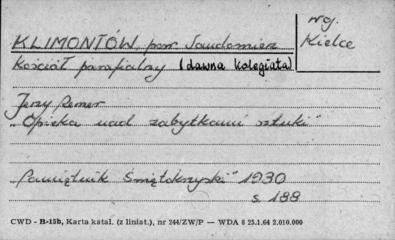 KLIMONTÓW, pow. Sandomierz
woj.
Kielce
Kościół parafialny (dawna kolegiata)
Jerzy Remer
„Opieka nad zabytkami sztuki"
„Pamiętnik Świętokrzyski" 1930
s 188
CWD - B-15b, Karta katal. (z liniat.), nr 244/ZW/P — WDA 8 25.1.64 2.010.000